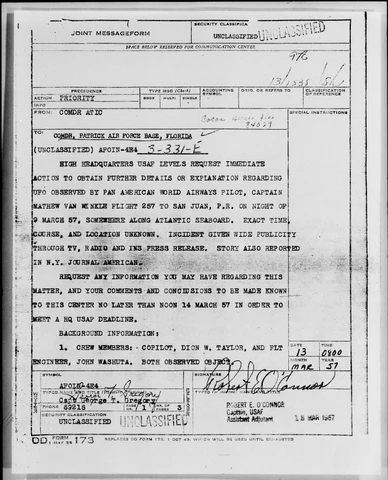 JOINT MESSAGEFORM
SECURITY CLASSIFICA
UNCLASSIFIED UNCLASSIFIED
SPACE BELOW RESERVED FOR COMMUNICATION CENTER
PRECEDENCE
TYPE MSG (Check)
ACCOUNTING SYMBOL
ORIG. OR REFERS TO
CLASSIFICATION OF REFERENCE
ACTION PRIORITY
BOOK MULTI SINGLE
INFO
FROM: COMDR ATIC
SPECIAL INSTRUCTIONS
TO: COMDR, PATRICK AIR FORCE BASE, FLORIDA
(UNCLASSIFIED) AFOIN-4E4 3-331-E
HIGH HEADQUARTERS USAF LEVELS REQUEST IMMEDIATE
ACTION TO OBTAIN FURTHER DETAILS OR EXPLANATION REGARDING
UFO OBSERVED BY PAN AMERICAN WORLD AIRWAYS PILOT, CAPTAIN
MATHEW VAN WINKLE FLIGHT 257 TO SAN JUAN, P.R. ON NIGHT OF
9 MARCH 57, SOMEWHERE ALONG ATLANTIC SEABOARD. EXACT TIME,
COURSE, AND LOCATION UNKNOWN. INCIDENT GIVEN WIDE PUBLICITY
THROUGH TV, RADIO AND INS PRESS RELEASE. STORY ALSO REPORTED
IN N.Y. JOURNAL AMERICAN.
REQUEST ANY INFORMATION YOU MAY HAVE REGARDING THIS
MATTER, AND YOUR COMMENTS AND CONCLUSIONS TO BE MADE KNOWN
TO THIS CENTER NO LATER THAN NOON 14 MARCH 57 IN ORDER TO
MEET A HQ USAF DEADLINE.
BACKGROUND INFORMATION:
1. CREW MEMBERS: - COPILOT, DION W. TAYLOR, AND FLT
ENGINEER, JOHN WASHUTA. BOTH OBSERVED OBJECT
DATE TIME
13 0800
MAR 57
SYMBOL
AFOIN-4E4
SIGNATURE
Robert E. O'Connor
Capt George T. Gregory
PHONE 69216
PAGE 1 OF 3
ROBERT E. O'CONNOR
Captain, USAF
Assistant Adjutant
13 MAR 1957
SECURITY CLASSIFICATION
UNCLASSIFIED UNCLASSIFIED
DD FORM 173
REPLACES DD FORM 173, 1 OCT 49, WHICH WILL BE USED UNTIL EXHAUSTED